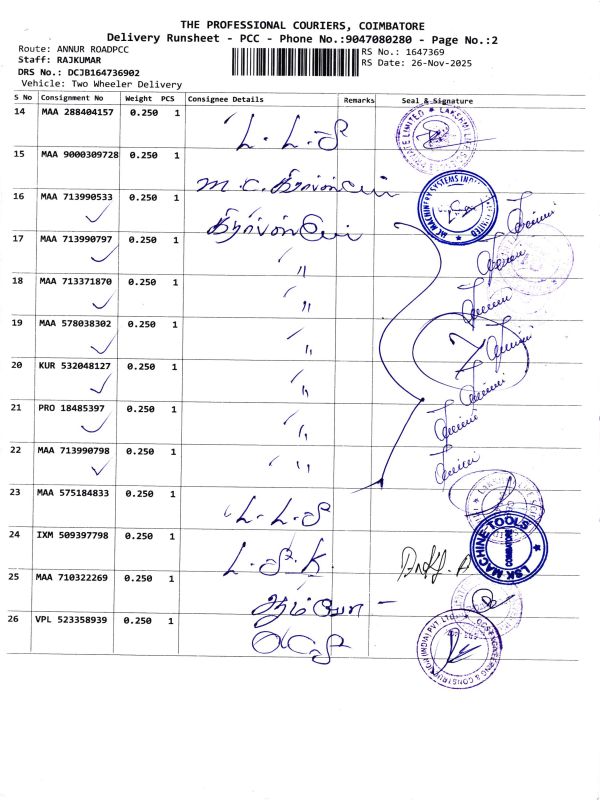 THE PROFESSIONAL COURIERS, COIMBATORE
Delivery Runsheet - PCC - Phone No.:9047080280 - Page No.:2
Route: ANNUR ROADPCC
RS No.: 1647369
Staff: RAJKUMAR
RS Date: 26-Nov-2025
DRS No.: DCJB164736902
Vehicle: Two Wheeler Delivery
S No Consignment No Weight PCS Consignee Details Remarks Seal & Signature
14 MAA 288404157 0.250 1 L.L.S
15 MAA 9000309728 0.250 1
16 MAA 713990533 0.250 1
17 MAA 713990797 0.250 1 〃
18 MAA 713371870 0.250 1 〃
19 MAA 578038302 0.250 1 〃
20 KUR 532048127 0.250 1 〃
21 PRO 18485397 0.250 1 〃
22 MAA 713990798 0.250 1 〃
23 MAA 575184833 0.250 1 L.L.S
24 IXM 509397798 0.250 1 L.S.K. LSK MACHINE TOOLS COIMBATORE
25 MAA 710322269 0.250 1
26 VPL 523358939 0.250 1 OCS